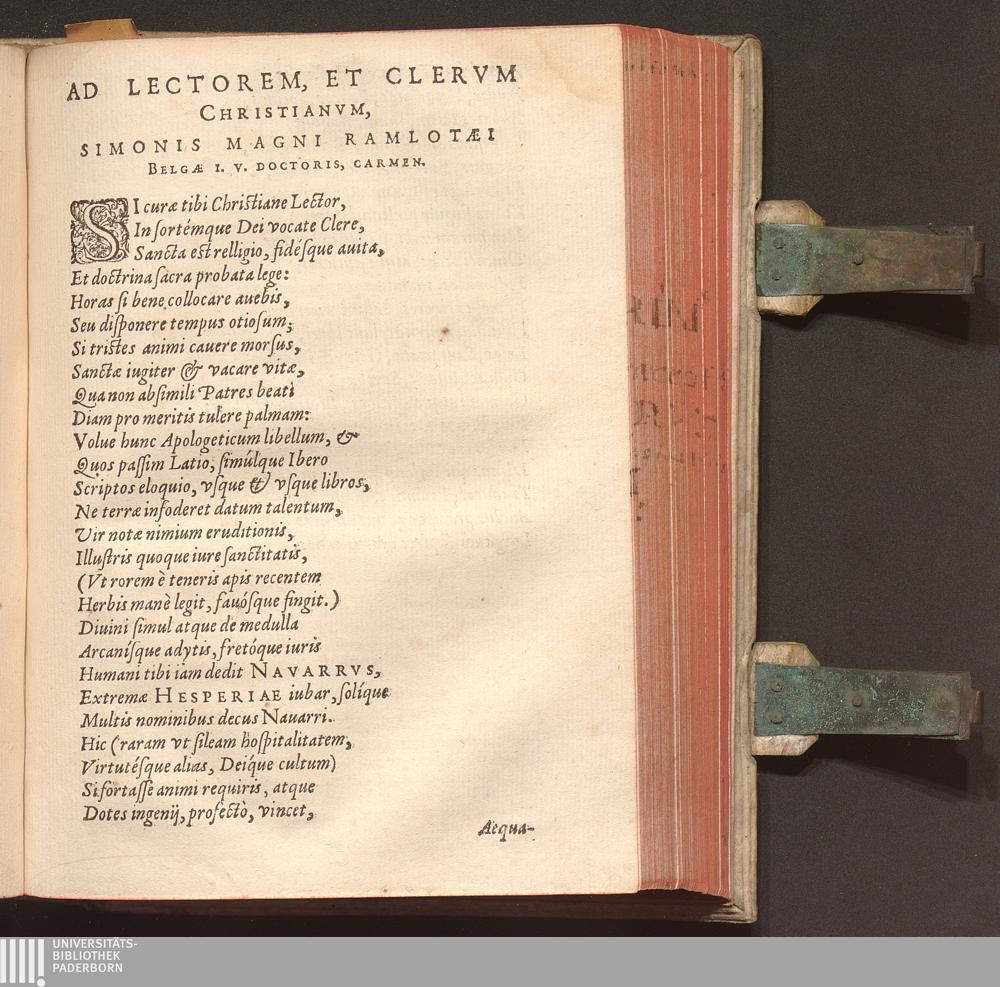 AD LECTOREM, ET CLERVM
CHRISTIANVM,
SIMONIS MAGNI RAMLOTÆI
BELGÆ I. V. DOCTORIS, CARMEN.
SI curæ tibi Chriſtiane Lector,
In ſortémque Dei vocate Clere,
Sancta eſt relligio, fidéſque auita,
Et doctrina ſacra probata lege:
Horas ſi bene collocare auebis,
Seu diſponere tempus otioſum;
Si triſtes animi cauere morſus,
Sanctæ iugiter & vacare vitæ,
Qua non abſimili Patres beati
Diam pro meritis tulere palmam:
Volue hunc Apologeticum libellum, &
Quos paſſim Latio, ſimúlque Ibero
Scriptos eloquio, vſque & vſque libros,
Ne terræ infoderet datum talentum,
Vir notæ nimium eruditionis,
Illuſtris quoque iure ſanctitatis,
(Vt rorem è teneris apis recentem
Herbis manè legit, fauóſque fingit.)
Diuini ſimul atque de medulla
Arcaníſque adytis, fretóque iuris
Humani tibi iam dedit NAVARRVS,
Extremæ HESPERIAE iubar, ſolíque
Multis nominibus decus Nauarri.
Hic (raram vt ſileam hoſpitalitatem,
Virtutéſque alias, Deíque cultum)
Si fortaſſe animi requiris, atque
Dotes ingenij, profectò, vincet,
Aequa-
UNIVERSITÄTS-
BIBLIOTHEK
PADERBORN